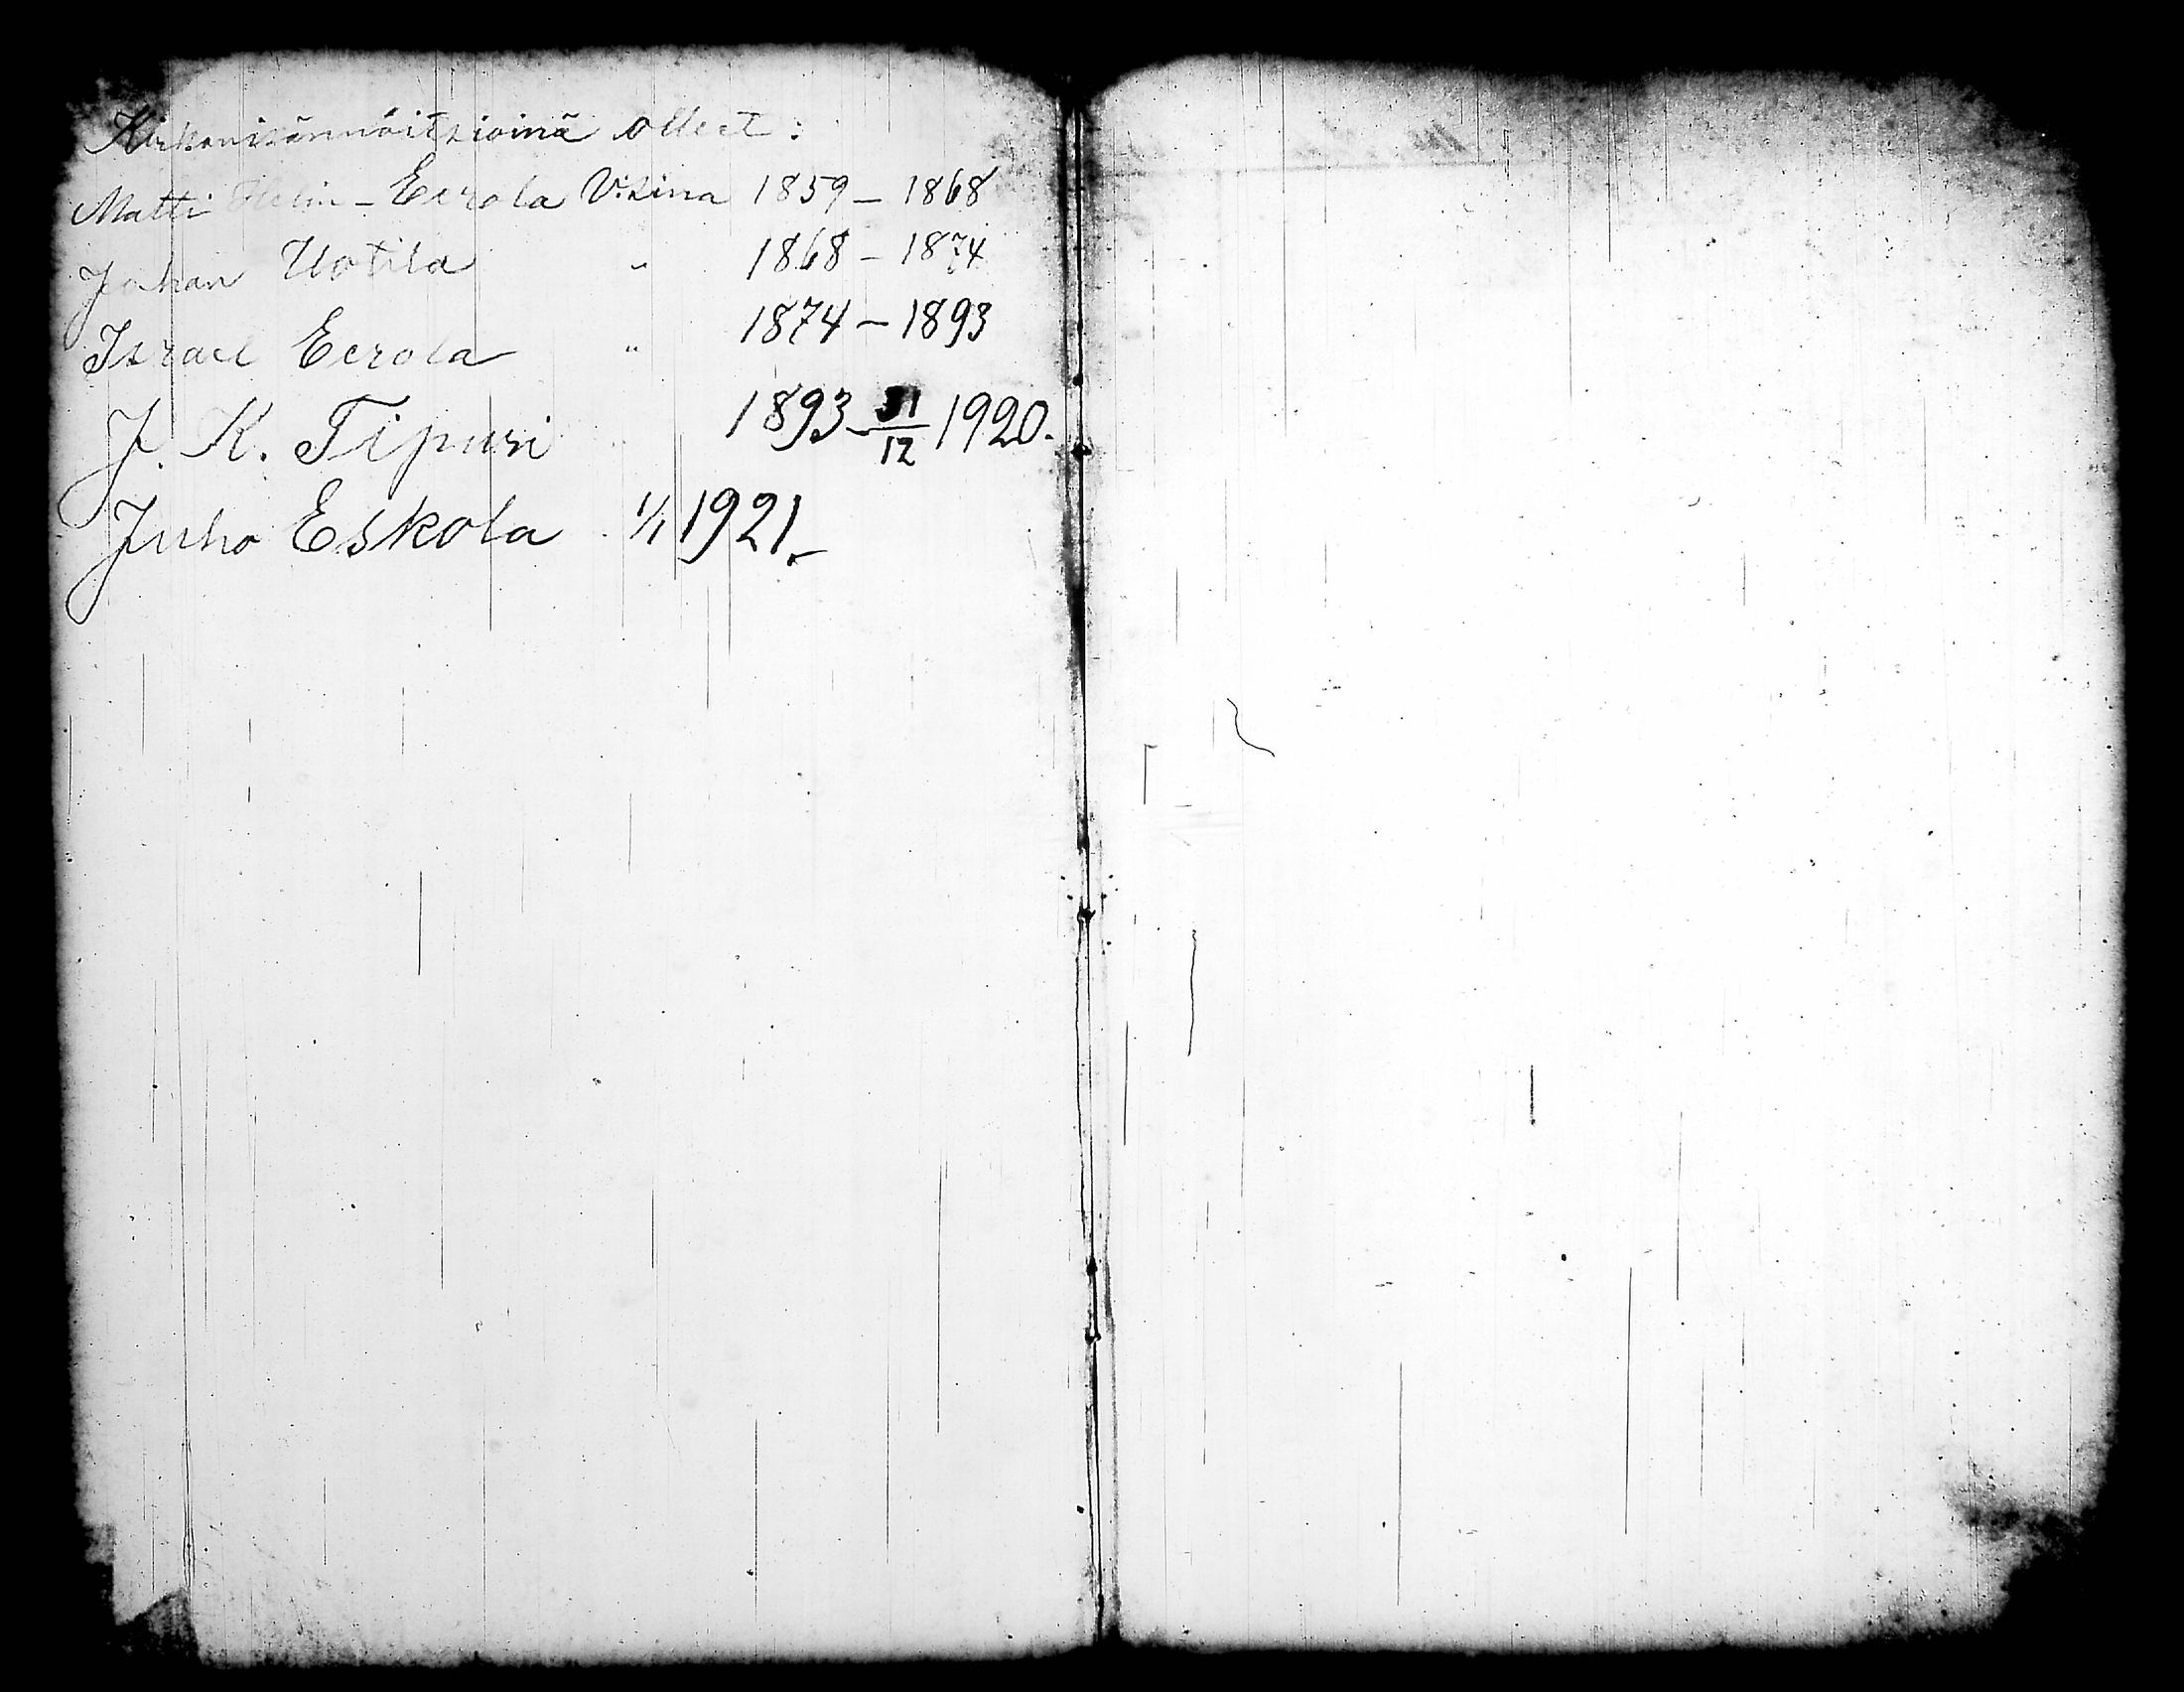 Kirkonisännöitsioinä olleet:
Matti Heini-Eerola V:sina 1859 – 1868
Johan Uotila " 1868 – 1874
Israel Eerola " 1874 – 1893
J. K. Tipuri " 1893 – 31/12 1920.
Juho Eskola . 1/1 1921. –